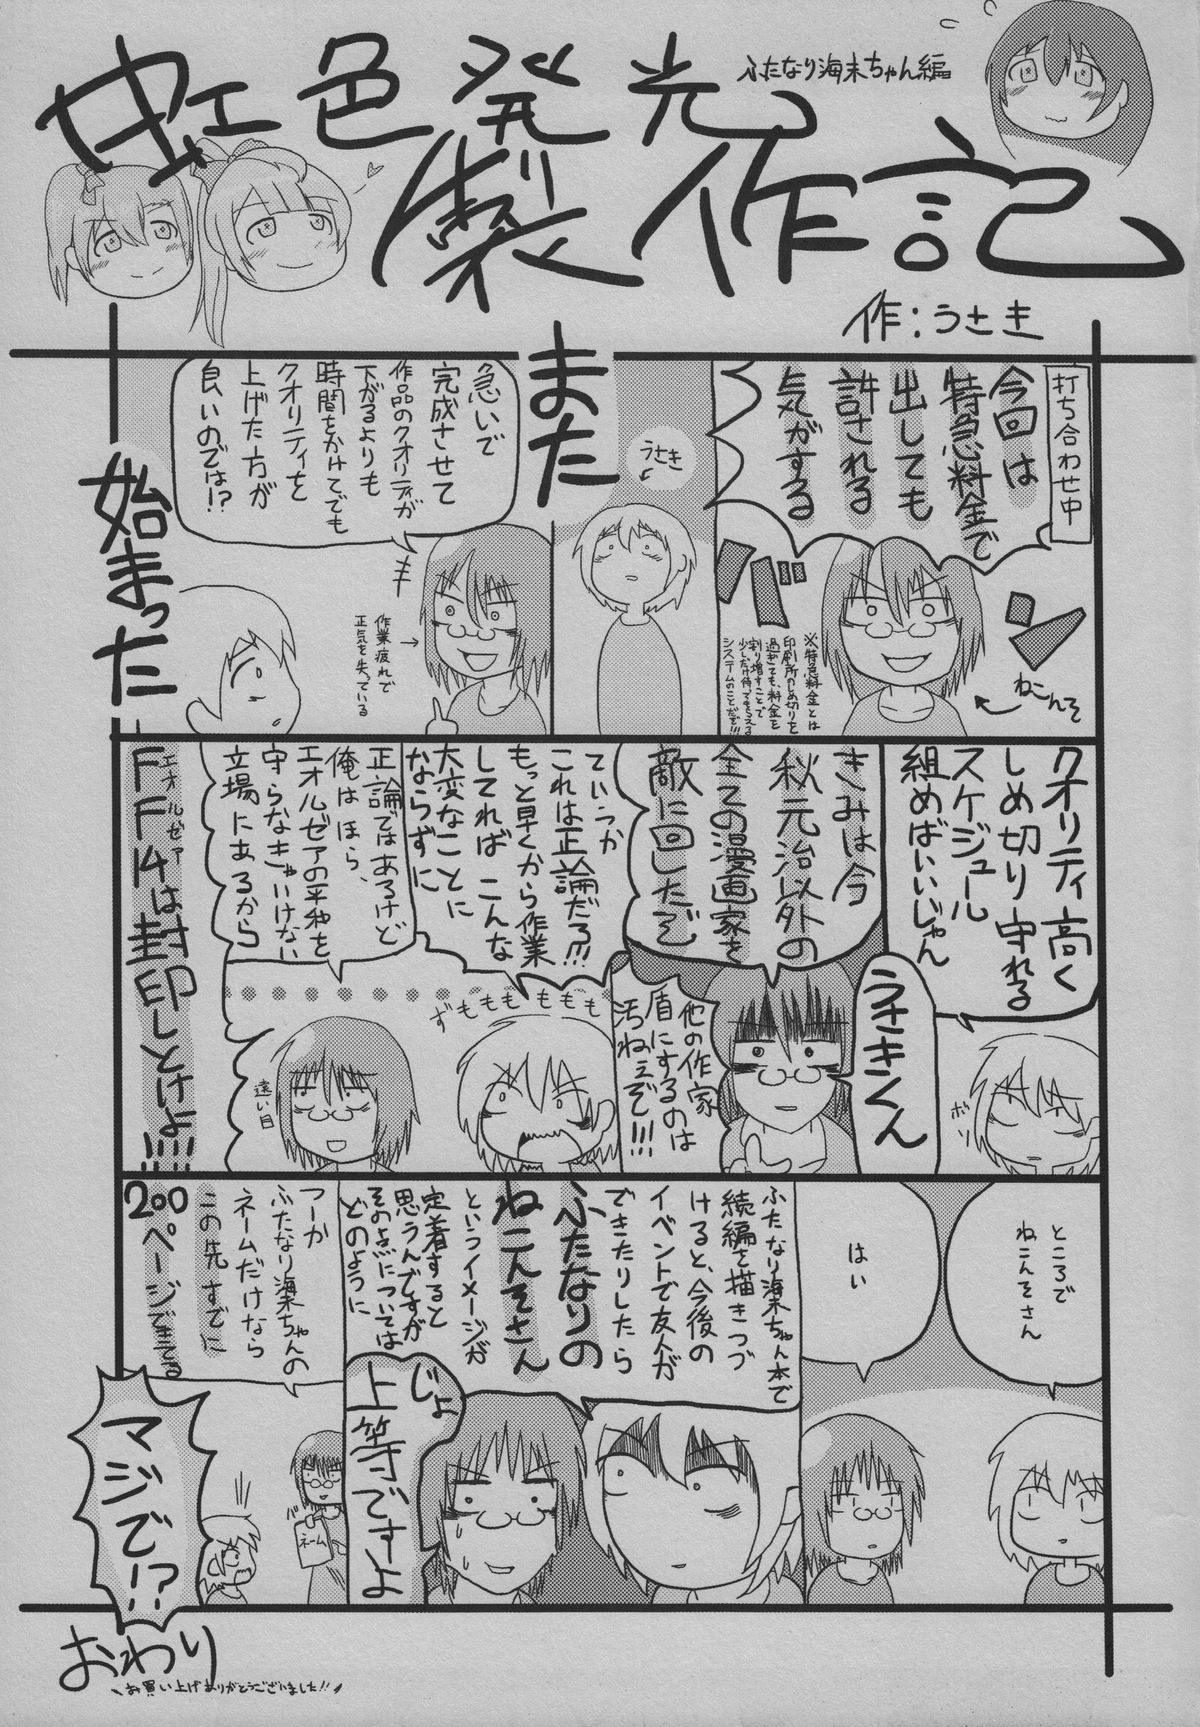 虹色発光
製作記
ふたなり海未ちゃん編
作:うさき
打ち合わせ中
今回は
特急料金で
出しても
許される
気がする
バ
ン
ねこんそ
※特急料金とは
印刷所のしめ切りを
過ぎても、料金を
割り増すことで
少しだけ待ってもらえる
システムのことだぞ!!!
うさき
また
急いで
完成させて
作品のクオリティが
下がるよりも
時間をかけてでも
クオリティを
上げた方が
良いのでは!?
作業疲れで
正気を失っている
始まった
クオリティ高く
しめ切り守れる
スケジュール
組めばいいじゃん
ボソ
うさきくん
きみは今
秋元治以外の
全ての漫画家を
敵に回したぞ
他の作家
盾にするのは
汚ねぇぞ!!!
ていうか
これは正論だろ!!!
もっと早くから作業
してれば こんな
大変なことに
ならずに
ずももももももも
正論ではあるけど
俺はほら、
エオルゼアの平和を
守らなきゃいけない
立場にあるから
遠い目
エオルゼア
FF14は封印しとけよ!!!!!
ところで
ねこんそさん
はい
ふたなり海未ちゃん本で
続編を描きつづ
けると、今後の
イベントで友人が
できたりしたら
ふたなりの
ねこんそさん
というイメージが
定着すると
思うんですが
その点については
どのように
じょ
上等ですよ
つーか
ふたなり海未ちゃんの
ネームだけなら
この先すでに
200ページできてる
ネーム
マジで!?
おわり
\お買い上げありがとうございました!!/